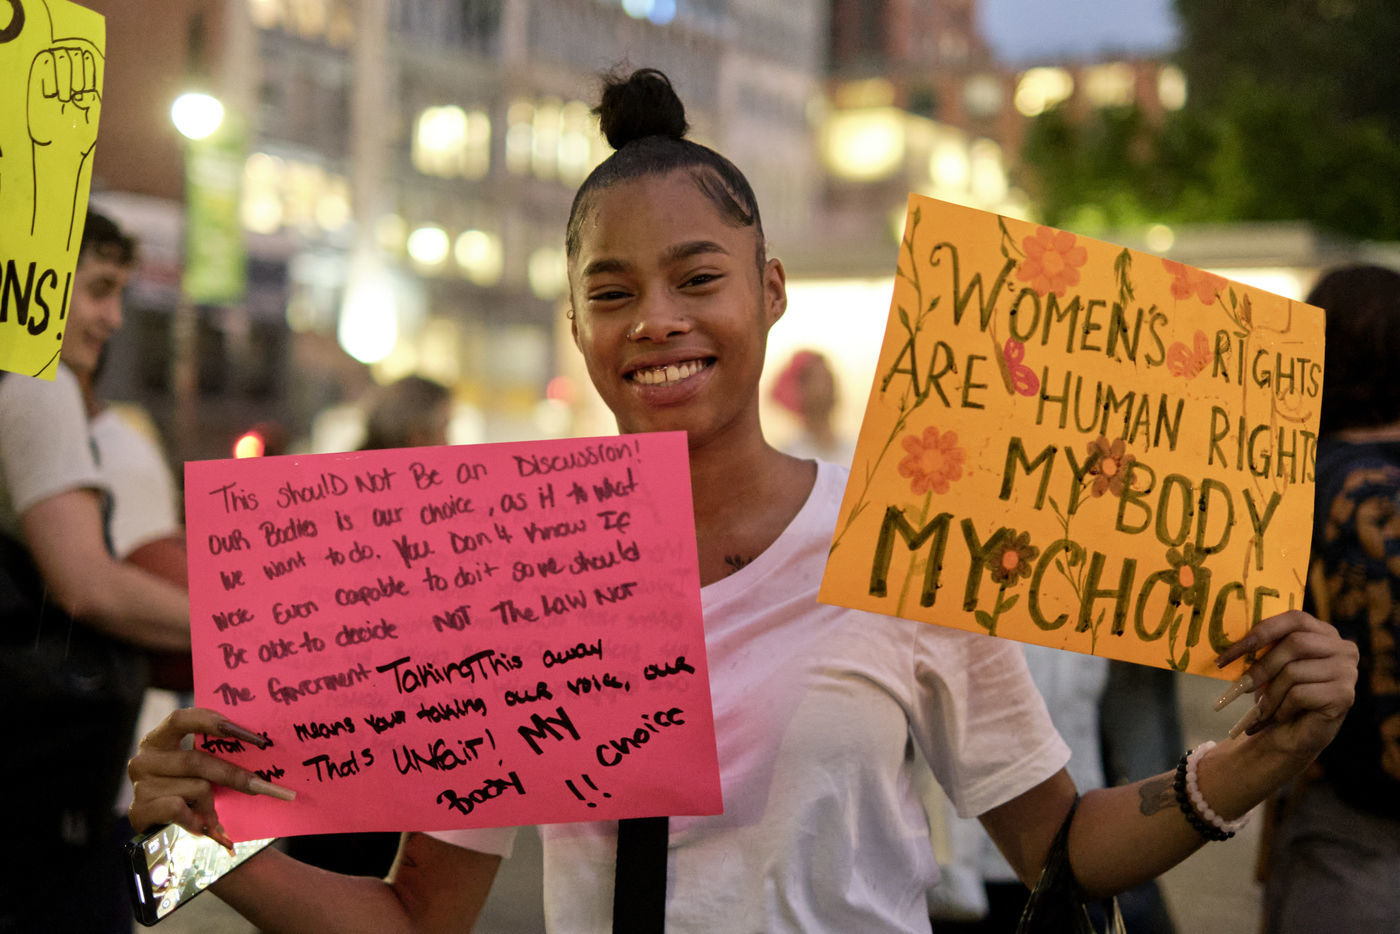 NS!
This shoulD Not Be an Discussion!
our Bodies is our choice, as it to what
we want to do. You Don't know If
were Even capable to do it so we should
Be able to decide NOT The Law Not
The Goverment Taking This away
from us means your taking our voice, our
That's UNfair! MY
Body choice
!!
WOMEN'S RIGHTS
ARE HUMAN RIGHTS
MY BODY
MY CHOICE!